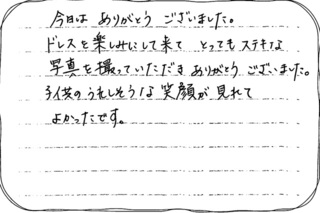 今日は ありがとう ございました。
ドレスを楽しみにして来て とっても ステキな
写真を撮っていただき ありがとう ございました。
子供のうれしそうな 笑顔が 見れて
よかったです。